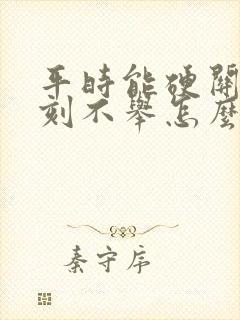 平時能硬關
刻不舉怎麼
秦守序